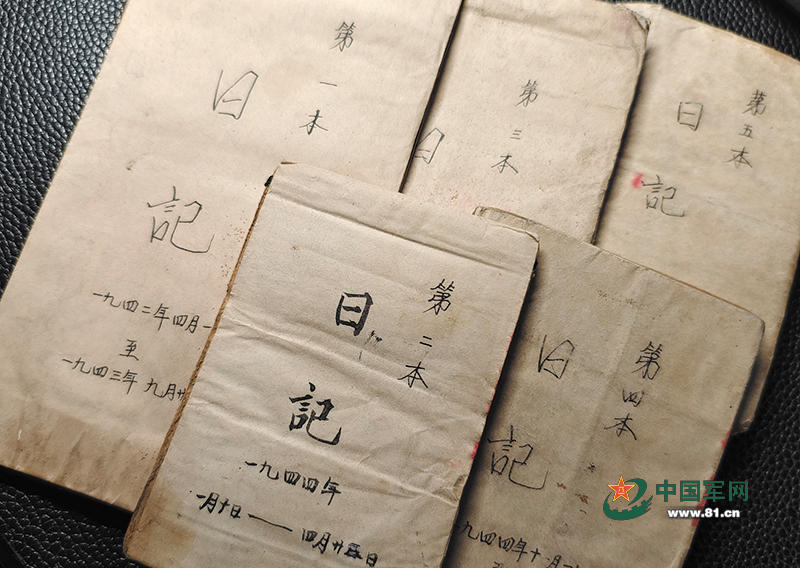 第一本
日記
一九四二年四月
至
一九四三年九月廿
第三本
日
第五本
日記
第二本
日記
一九四四年
一月十日——四月廿五日
第四本
日記
九四四年十月
至
中国军网
www.81.cn